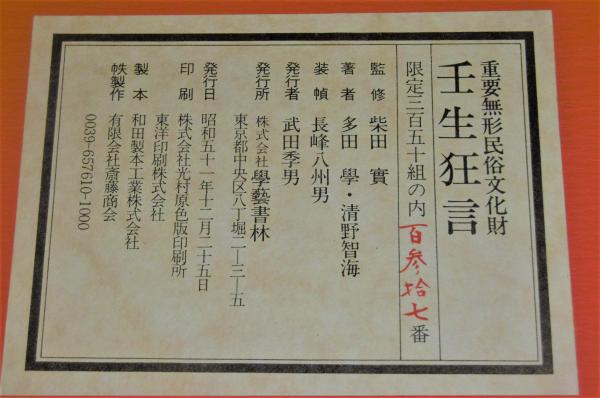 重要無形民俗文化財
壬生狂言
限定三百五十組の内 百参拾七番
監修 柴田 實
著者 多田 學・清野智海
装幀 長峰八州男
発行者 武田季男
発行所 株式会社 學藝書林
東京都中央区八丁堀二―三―五
発行日 昭和五十一年十二月二十五日
印刷 株式会社光村原色版印刷所
東洋印刷株式会社
製本 和田製本工業株式会社
帙製作 有限会社斎藤商会
0039-657610-1000